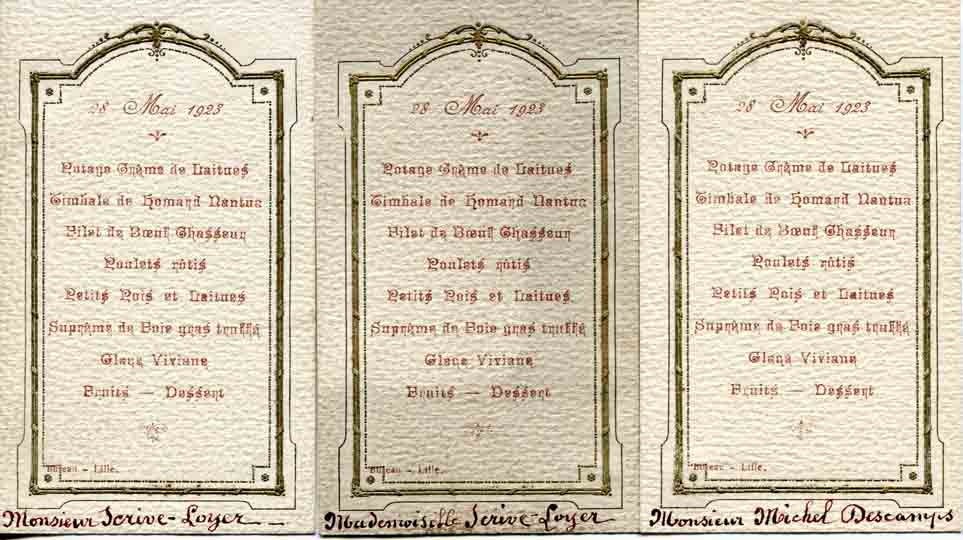 28 Mai 1923
Potage Crème de Laitues
Timbale de Homard Nantua
Filet de Bœuf Chasseur
Poulets rôtis
Petits Pois et Laitues
Suprême de Foie gras truffé
Glace Viviane
Fruits — Dessert
Bureau - Lille.
Monsieur Scrive-Loyer
28 Mai 1923
Potage Crème de Laitues
Timbale de Homard Nantua
Filet de Bœuf Chasseur
Poulets rôtis
Petits Pois et Laitues
Suprême de Foie gras truffé
Glace Viviane
Fruits — Dessert
Bureau - Lille.
Mademoiselle Scrive-Loyer
28 Mai 1923
Potage Crème de Laitues
Timbale de Homard Nantua
Filet de Bœuf Chasseur
Poulets rôtis
Petits Pois et Laitues
Suprême de Foie gras truffé
Glace Viviane
Fruits — Dessert
Bureau - Lille.
Monsieur Michel Descamps